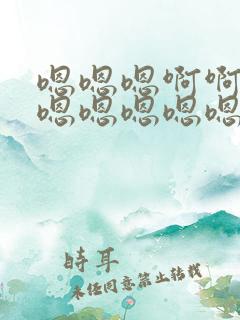 嗯嗯嗯啊啊
嗯嗯嗯嗯嗯
時耳
未经同意禁止转载